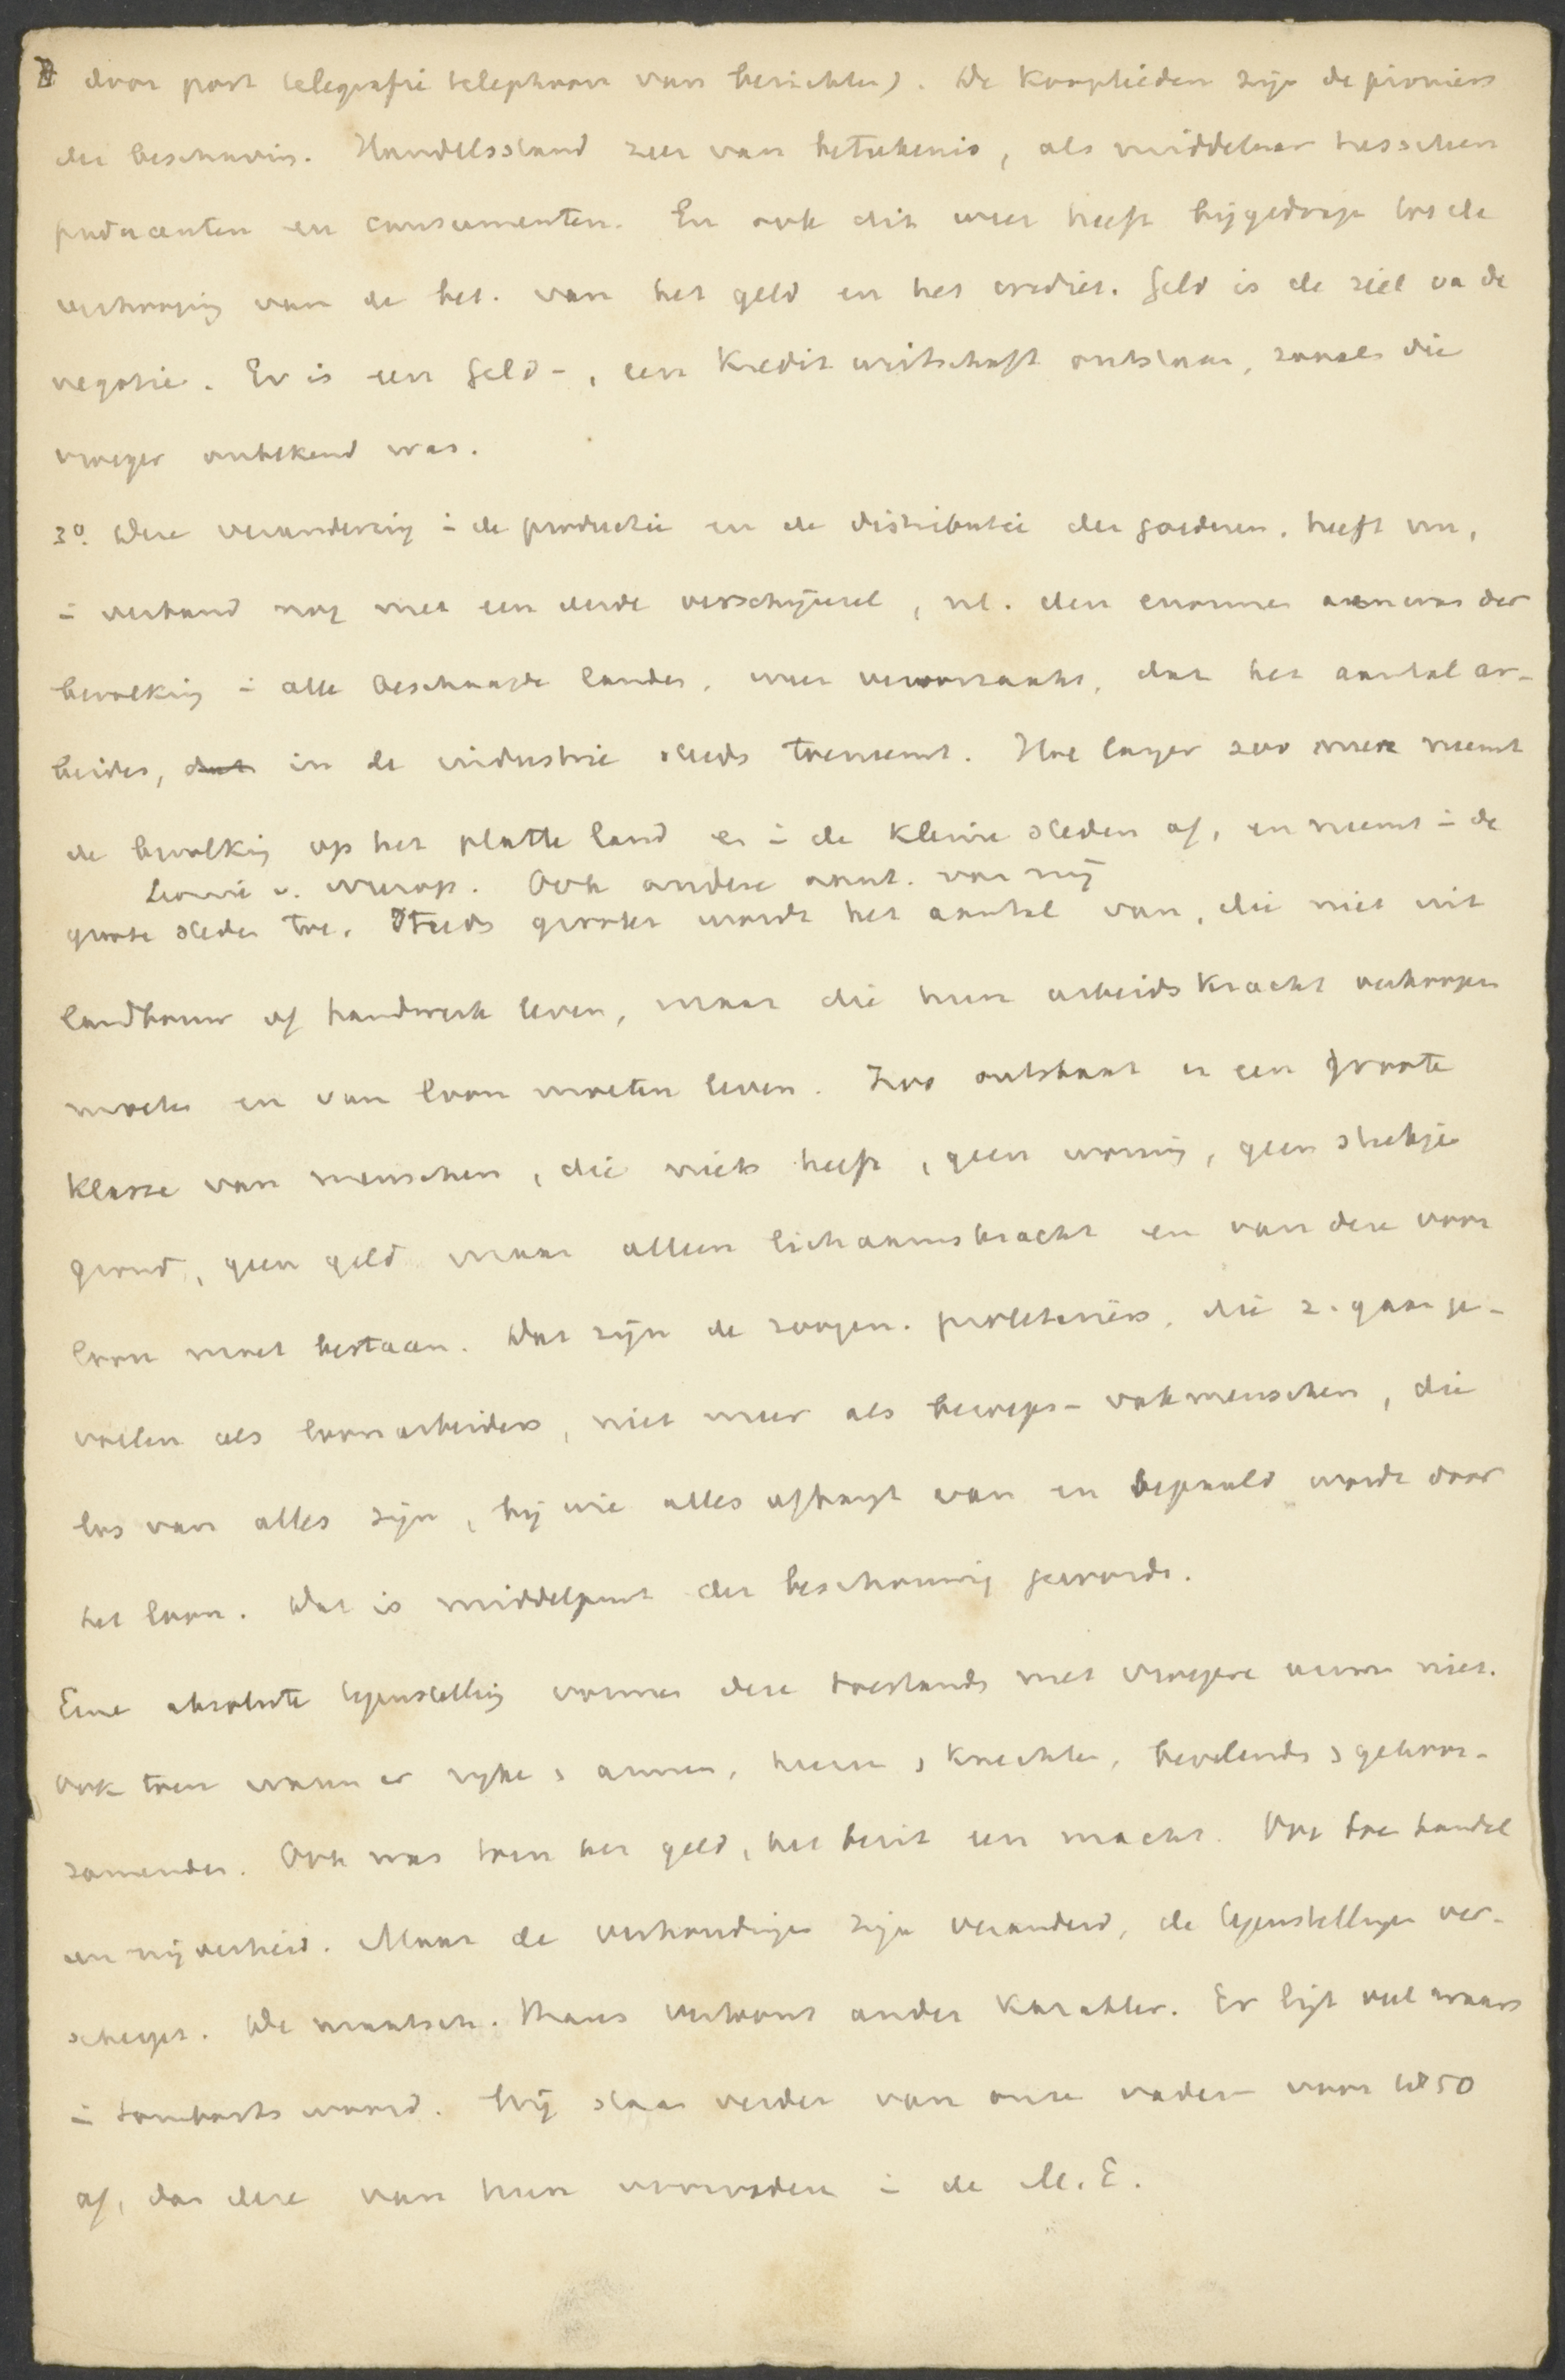 door post telegrafie telephoon van berichten). De kooplieden zijn de pioniers
der beschaving. Handelsstand zeer van beteekenis, als middelaar tusschen
producenten en consumenten. En ook dit weer heeft bijgedrage tot de
verhooging van de bet. van het geld en het crediet. Geld is de ziel va de
negotie. Er is een Geld-, een Kredit wirtschaft ontstaan, zooals die
vroeger onbekend was.
3o. Deze verandering i de productie en de distributie der goederen, heeft nu,
i verband nog met een derde verschijnsel, nl. den enormen aanwas der
bevolking i alle beschaafde landen, weer veroorzaakt, dat het aantal ar-
beiders, dat in de industrie steeds toeneemt. Hoe langer zoo meer neemt
de bevolking op het platte land en i de kleine steden af, en neemt i de
Leonie v. Ook andere aant. van mij
groote steden toe. Steeds grooter wordt het aantal van, die niet uit
landbouw of handwerk leven, maar die hun arbeidskracht verkoopen
moeten en van loon moeten leven. Zoo ontstaat er een groote
klasse van menschen, die niets heeft, geen woning, geen stukje
grond, geen geld maar alleen lichaamskracht en van deze voor
loon moet bestaan. Dat zijn de zoogen. proletariërs, die z. gaan ge-
voelen als loonarbeiders, niet meer als beroeps- vakmenschen, die
los van alles zijn, bij wie alles afhangt van en bepaald wordt door
het loon. Dat is middelpunt der beschouwing geworde.
Eene absolute tegenstelling vormen deze toestands met vroegere eeuwen niet.
Ook toen waren er rijke s armen, heeren s knechten, bevelends s gehoor-
zamenden. Ook was toen het geld, het bezit een macht. Ook toe handel
en nijverheid. Maar de verhoudingen zijn veranderd, de tegenstellingen ver-
scherpt. De maatsch. thans vertoont ander karakter. Er ligt veel waars
i Sombarts woord. Wij staan verder van onze vaderen voor 150
af, dan deze van hun voorvaderen i de M.E.